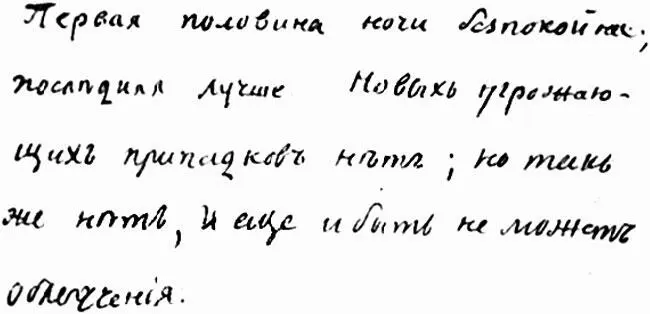 Первая половина ночи безпокойна;
последняя лучше Новыхъ угрожаю-
щихъ припадковъ нѣтъ; но такъ
же нѣтъ, и еще и быть не можетъ
облегченія.